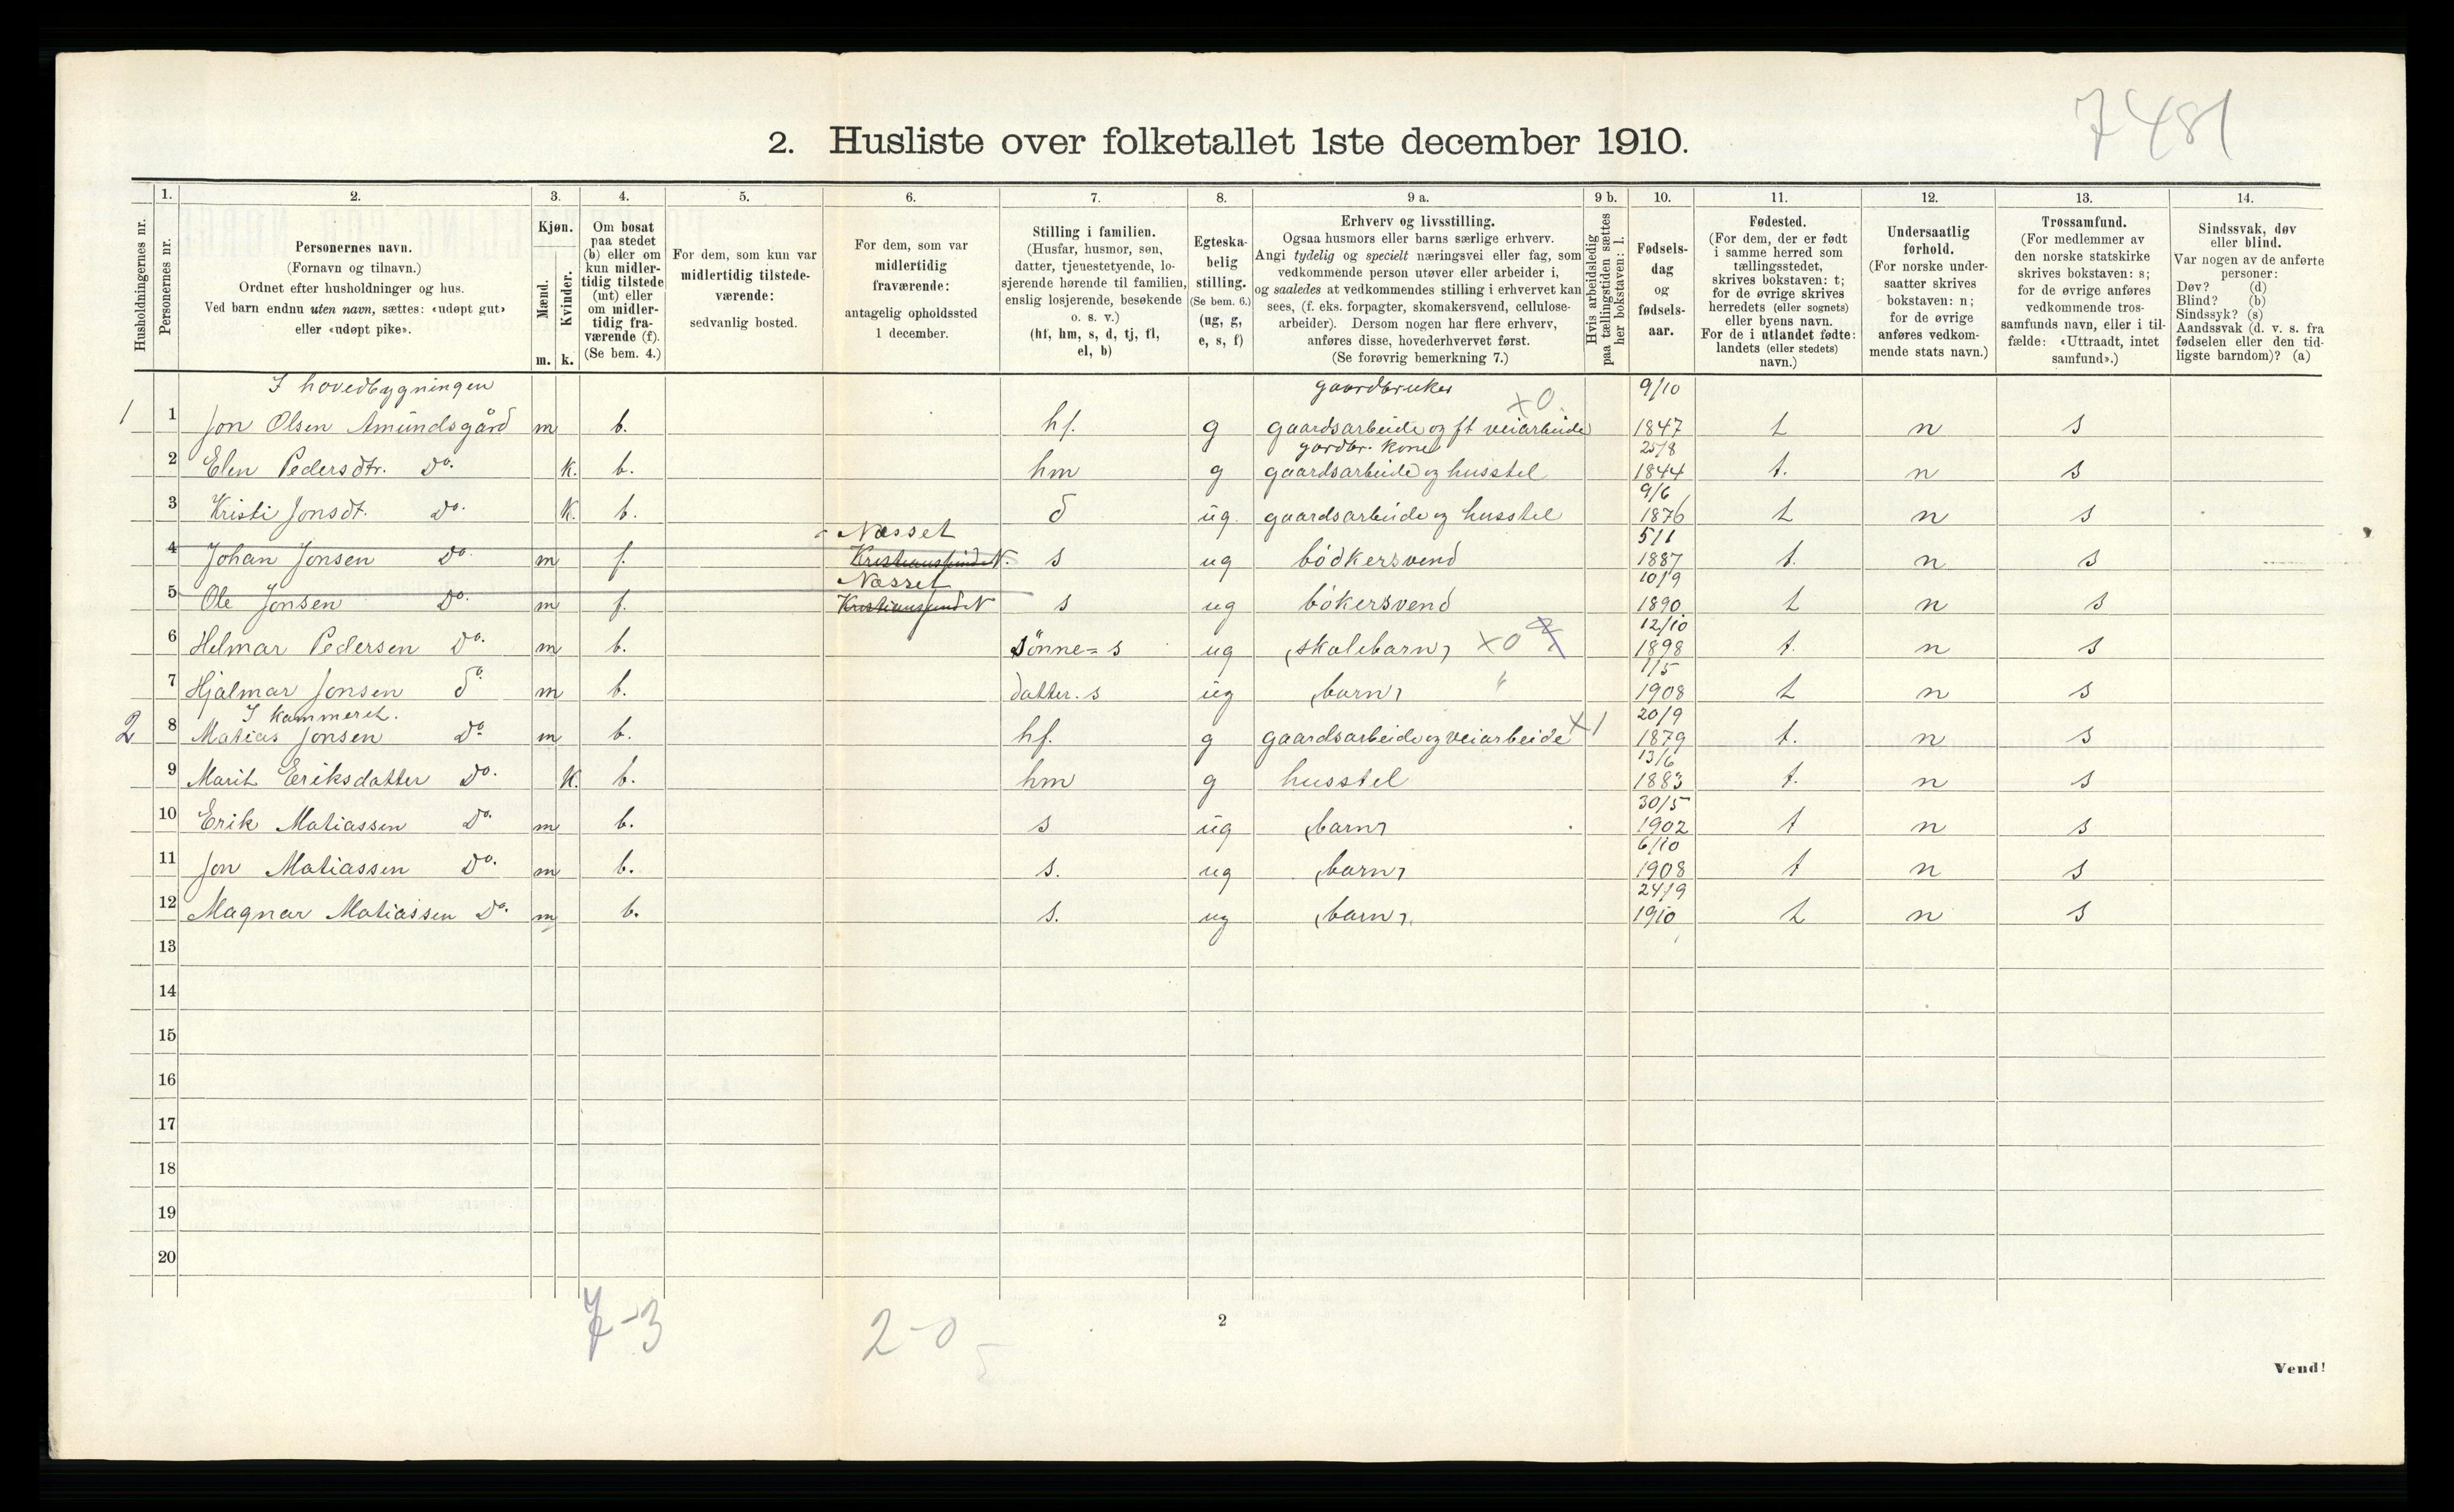 7481
2. Husliste over folketallet 1ste december 1910.
Husholdningernes nr.
1.
Personernes nr.
2.
Personernes navn.
(Fornavn og tilnavn.)
Ordnet efter husholdninger og hus.
Ved barn endnu uten navn, sættes: «udøpt gut»
eller «udøpt pike».
3.
Kjøn.
Mænd.
Kvinder.
m. k.
4.
Om bosat
paa stedet
(b) eller om
kun midler-
tidig tilstede
(mt) eller
om midler-
tidig fra-
værende (f).
(Se bem. 4.)
5.
For dem, som kun var
midlertidig tilstede-
værende:
sedvanlig bosted.
6.
For dem, som var
midlertidig
fraværende:
antagelig opholdssted
1 december.
7.
Stilling i familien.
(Husfar, husmor, søn,
datter, tjenestetyende, lo-
sjerende hørende til familien,
enslig losjerende, besøkende
o. s. v.)
(hf, hm, s, d, tj, fl,
el, b)
8.
Egteska-
belig
stilling.
(Se bem. 6.)
(ug, g,
e, s, f)
9 a.
Erhverv og livsstilling.
Ogsaa husmors eller barns særlige erhverv.
Angi tydelig og specielt næringsvei eller fag, som
vedkommende person utøver eller arbeider i,
og saaledes at vedkommendes stilling i erhvervet kan
sees, (f. eks. forpagter, skomakersvend, cellulose-
arbeider). Dersom nogen har flere erhverv,
anføres disse, hovederhvervet først.
(Se forøvrig bemerkning 7.)
9 b.
Hvis arbeidsledig
paa tællingstiden sættes
her bokstaven: l.
10.
Fødsels-
dag
og
fødsels-
aar.
11.
Fødested.
(For dem, der er født
i samme herred som
tællingsstedet,
skrives bokstaven: t;
for de øvrige skrives
herredets (eller sognets)
eller byens navn.
For de i utlandet fødte:
landets (eller stedets)
navn.)
12.
Undersaatlig
forhold.
(For norske under-
saatter skrives
bokstaven: n;
for de øvrige
anføres vedkom-
mende stats navn.)
13.
Trossamfund.
(For medlemmer av
den norske statskirke
skrives bokstaven: s;
for de øvrige anføres
vedkommende tros-
samfunds navn, eller i til-
fælde: «Uttraadt, intet
samfund».)
14.
Sindssvak, døv
eller blind.
Var nogen av de anførte
personer:
Døv? (d)
Blind? (b)
Sindssyk? (s)
Aandssvak (d. v. s. fra
fødselen eller den tid-
ligste barndom)? (a)
I hovedbygningen gaardbruker 9/10
1 1 Jon Olsen Amundsgård m b. hf. g gaardsarbeide og ft veiarbeide x0 1847 t n s
gardbr. kone 25/8
2 Elen Pedersdtr. Do. k. b. hm g gaardsarbeide og husstel 1844 t. n s
9/6
3 Kristi Jonsdt. Do. k. b. d ug. gaardsarbeide og husstel 1876 t n s
Næsset 5/1
4 Johan Jonsen Do. m f. Kristianssund N. s ug bödkersvend 1887 t. n s
Næsset 10/9
5 Ole Jonsen Do. m f. Kristianssund N s ug bökersvend 1890 t n s
12/10
6 Helmar Pedersen Do. m b. sönne=s ug (skolebarn) x0 1898 t. n s
1/5
7 Hjalmar Jonsen do. m b. datter.s ug (barn) " 1908 t n s
I kammeret. 20/9
2 8 Matias Jonsen Do m b. hf. g gaardsarbeide og veiarbeide x1 1879 t. n s
13/6
9 Marit Eriksdatter Do. k. b. hm g husstel 1883 t. n s
30/5
10 Erik Matiassen Do. m b. s ug (barn) 1902 t n s
6/10
11 Jon Matiassen Do. m b. s. ug (barn) 1908 t n s
24/9
12 Magnar Matiassen Do. m b. s. ug (barn) 1910 t n s
13
14
15
16
17
18
19
20
7-3 2-0
2
Vend!